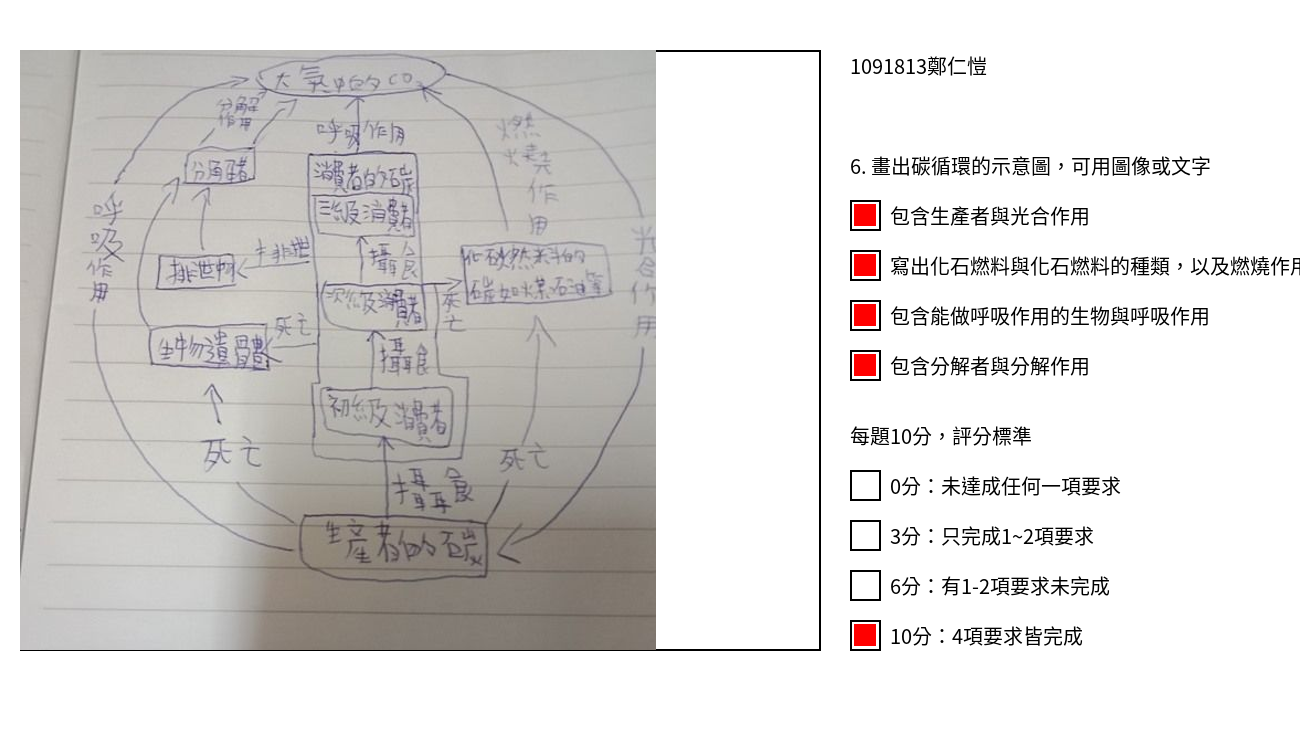 大氣中的CO₂
分解
作用
呼吸作用
燃
燒
作
用
分解者
消費者的碳
三級消費者
呼
吸
作
用
排泄
排泄物
攝食
化石燃料的
碳如煤石油等
光
合
作
用
次級消費者
死
亡
死亡
生物遺體
攝食
初級消費者
死亡
死亡
攝食
生產者的碳
1091813鄭仁愷
6. 畫出碳循環的示意圖，可用圖像或文字
包含生產者與光合作用
寫出化石燃料與化石燃料的種類，以及燃燒作用
包含能做呼吸作用的生物與呼吸作用
包含分解者與分解作用
每題10分，評分標準
0分：未達成任何一項要求
3分：只完成1~2項要求
6分：有1-2項要求未完成
10分：4項要求皆完成